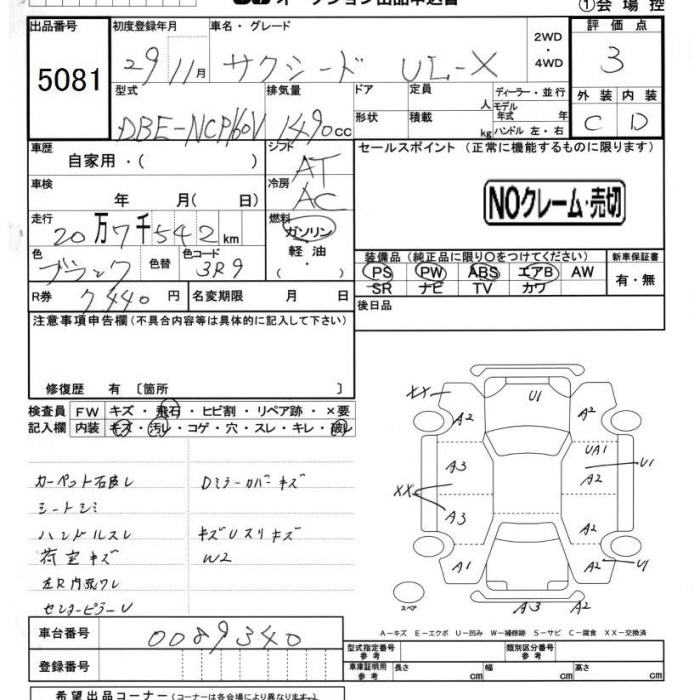 オークション出品申込書
①会場控
出品番号
5081
初度登録年月
29 11月
車名・グレード
サクシード UL-X
2WD
・
4WD
評価点
3
外装 内装
C D
型式
DBE-NCP160V
排気量
1490cc
ドア
形状
定員 人
積載 kg
ディーラー・並行
モデル年式 年
ハンドル 左・右
車歴
自家用・( )
シフト
AT
セールスポイント (正常に機能するものに限ります)
NOクレーム・売切
車検
年 月( 日)
冷房
AC
走行
20万7千542km
燃料
ガソリン
軽油
・( )
色
ブラック
色替
色コード
3R9
装備品(純正品に限り○をつけてください)
PS PW ABS エアB AW
SR ナビ TV カワ
新車保証書
有・無
R券
7440円
名変期限 月 日
後日品
注意事項申告欄(不具合内容等は具体的に記入して下さい)
修復歴 有 〔箇所 〕
検査員
記入欄
FW キズ・飛石・ヒビ割・リペア跡・×要
内装 キズ・汚レ・コゲ・穴・スレ・キレ・破レ
カーペット石皮レ
Dミラーカバーキズ
シートシミ
ハンドルスレ
キズUスリキズ
荷室キズ
W2
左R内張ワレ
センターピラーU
XX
A2
U1
A2
UA1
U1
A3
A2
XX
A3
A2
A1
A2
U1
A3
A2
スペア
A-キズ E-エクボ U-凹み W-補修跡 S-サビ C-腐食 XX-交換済
車台番号
0089340
登録番号
型式指定番号
類別区分番号
車庫証明用参考
長さ cm
幅 cm
高さ cm
希望出品コーナー(各会場により異なります。)